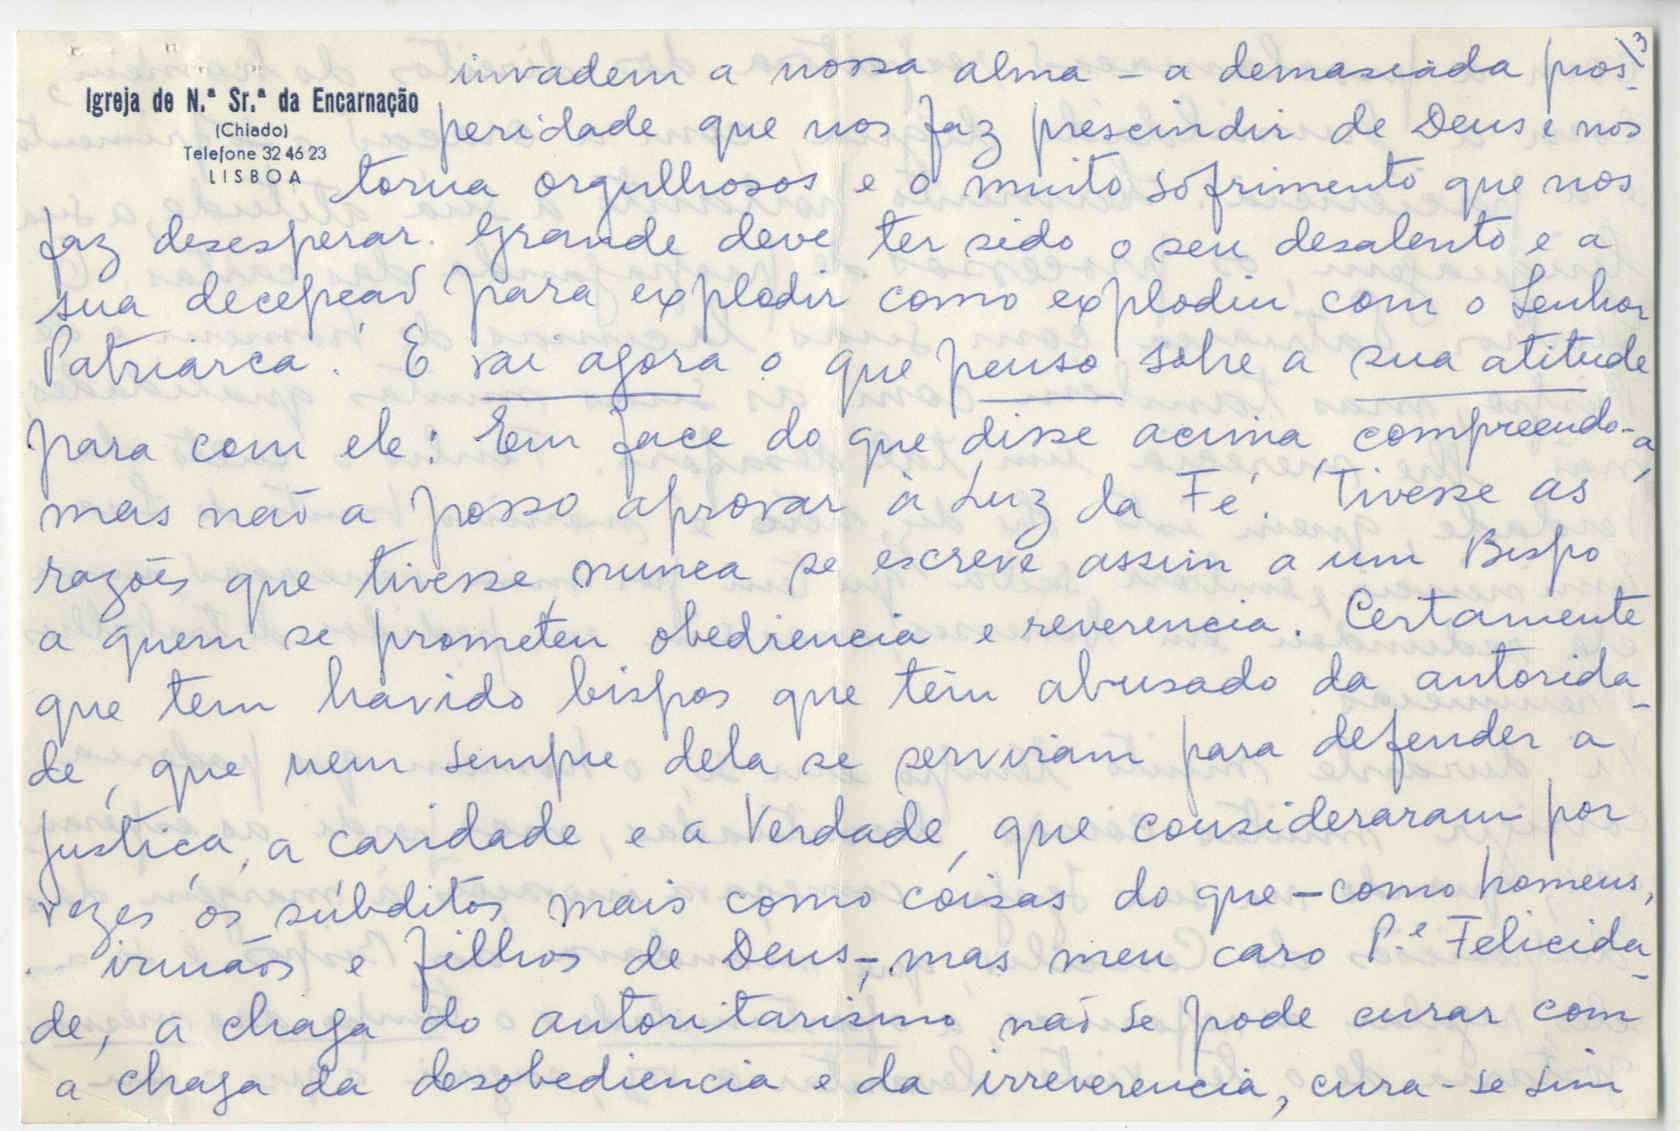 13
Igreja de N.ª Sr.ª da Encarnação
(Chiado)
Telefone 32 46 23
LISBOA
invadem a nossa alma – a demasiada pros-
peridade que nos faz prescindir de Deus e nos
torna orgulhosos e o muito sofrimento que nos
faz desesperar. Grande deve ter sido o seu desalento e a
sua decepção para explodir como explodiu com o Senhor
Patriarca. E vai agora o que penso sobre a sua atitude
para com ele: Em face do que disse acima, compreendo-a,
mas não a posso aprovar à Luz da Fé. Tivesse as
razões que tivesse, nunca se escreve assim a um Bispo
a quem se prometeu obediencia e reverencia. Certamente
que tem havido bispos que têm abusado da autorida-
de, que nem sempre dela se serviram para defender a
justiça, a caridade e a Verdade, que consideraram por
vezes os súbditos mais como coisas do que – como homens,
irmãos e filhos de Deus –, mas meu caro P.e Felicida-
de, a chaga do autoritarismo não se pode curar com
a chaga da desobediencia e da irreverencia, cura-se sim